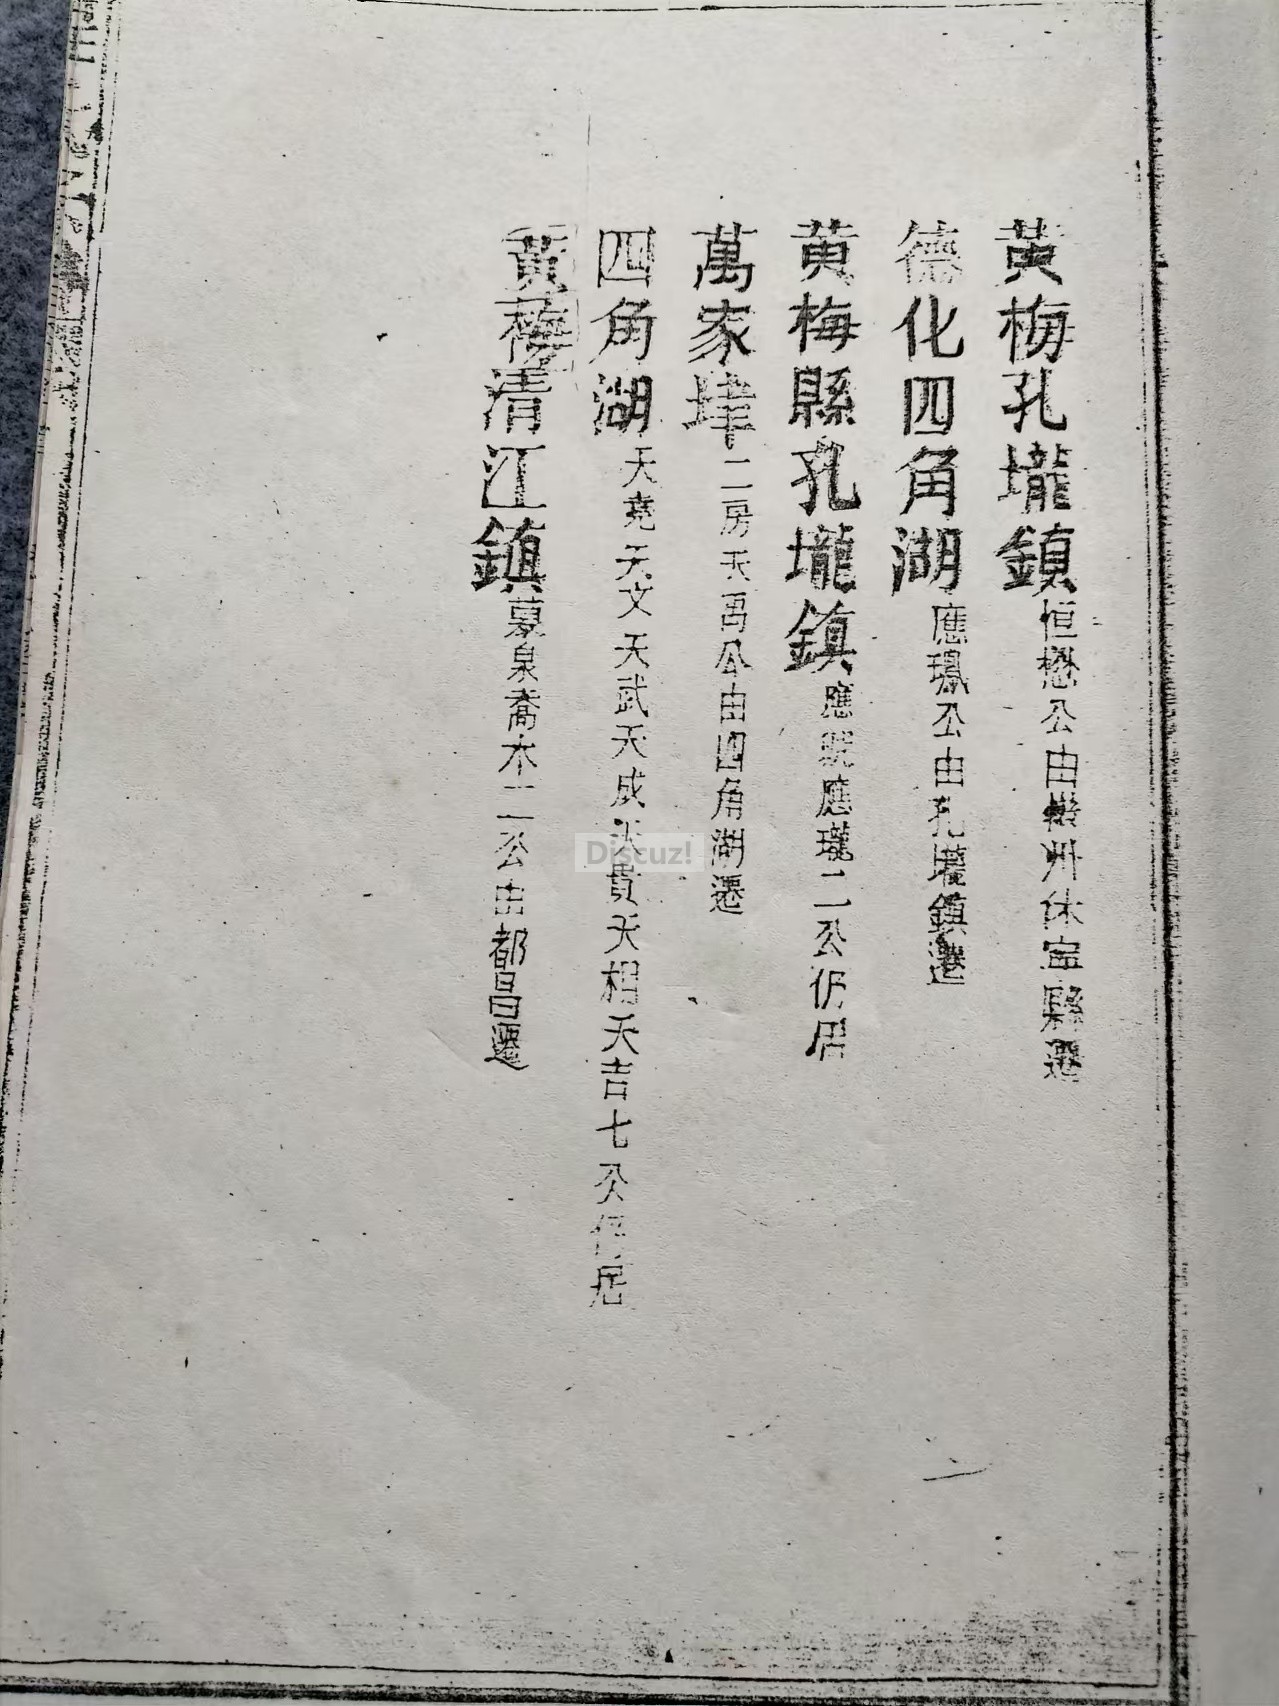 黃梅孔壠鎮恒懋公由徽州休寧縣遷
德化四角湖應鳳公由孔壠鎮遷
黃梅縣孔壠鎮應 應瓏二公仍居
萬家 二房天禹公由四角湖遷
四角湖天堯天文天武天成天貴天相天吉七公仍居
黃梅清江鎮慕泉喬木二公由都昌遷
Discuz!